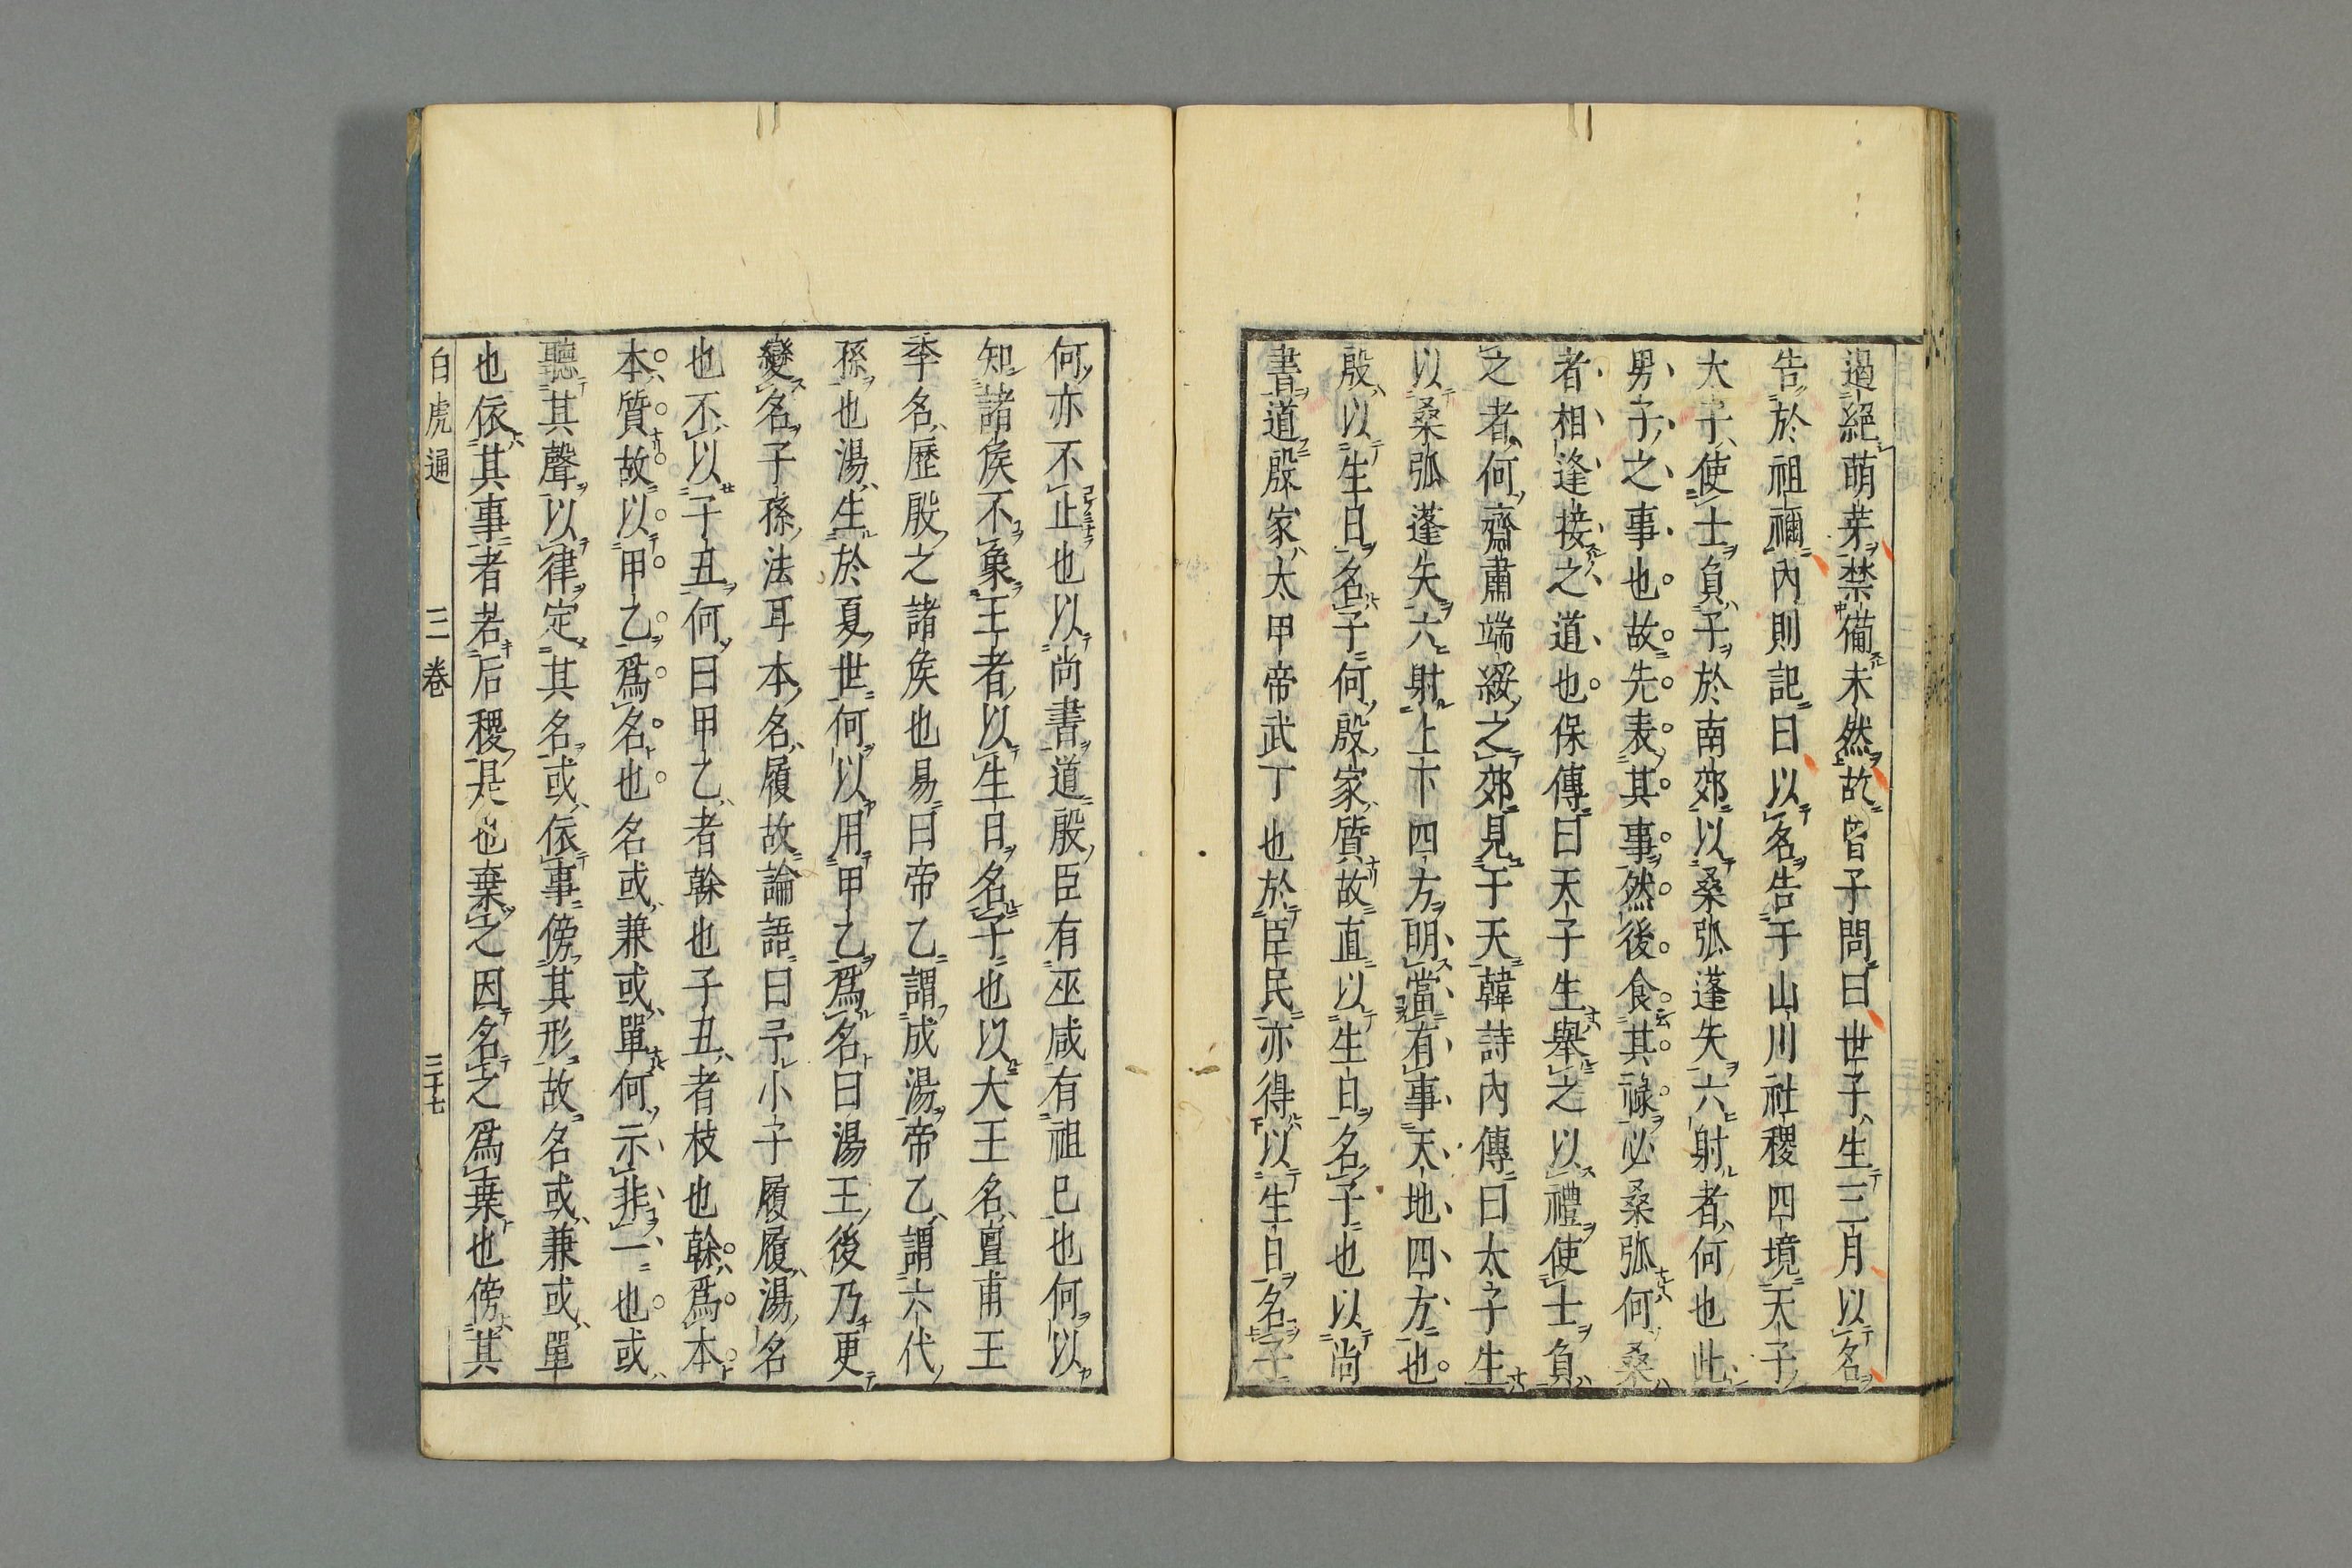 過絕萌芽禁備未然故曾子問曰世子生三月以名
告於祖禰內則記曰以名告于山川社稷四境天子
大子使士負子於南郊以桑弧蓬矢六射者何也此
男子之事也故先表其事然後食其祿必桑弧何桑
者相逢接之道也保傳曰天子生舉之以禮使士負
之者何齋肅端綏之郊見于天韓詩內傳曰太子生
以桑弧蓬矢六射上下四方明當有事天地四方也
殷以生日名子何殷家質故直以生日名子也以尚
書道殷家太甲帝武丁也於臣民亦得以生日名子
何亦不止也以尚書道殷臣有巫咸有祖已也何以
知諸侯不象王者以生日名子也以大王名亶甫王
季名歷殷之諸侯也易曰帝乙謂成湯帝乙謂六代
孫也湯生於夏世何以用甲乙爲名曰湯王後乃更
變名子孫法耳本名履故論語曰予小子履履湯名
也不以子丑何曰甲乙者榦也子丑者枝也榦爲本
本質故以甲乙爲名也名或兼或單何示非一也或
聽其聲以律定其名或依事傍其形故名或兼或單
也依其事者若后稷是也棄之因名之爲棄也傍其
白虎通　三卷　三十七